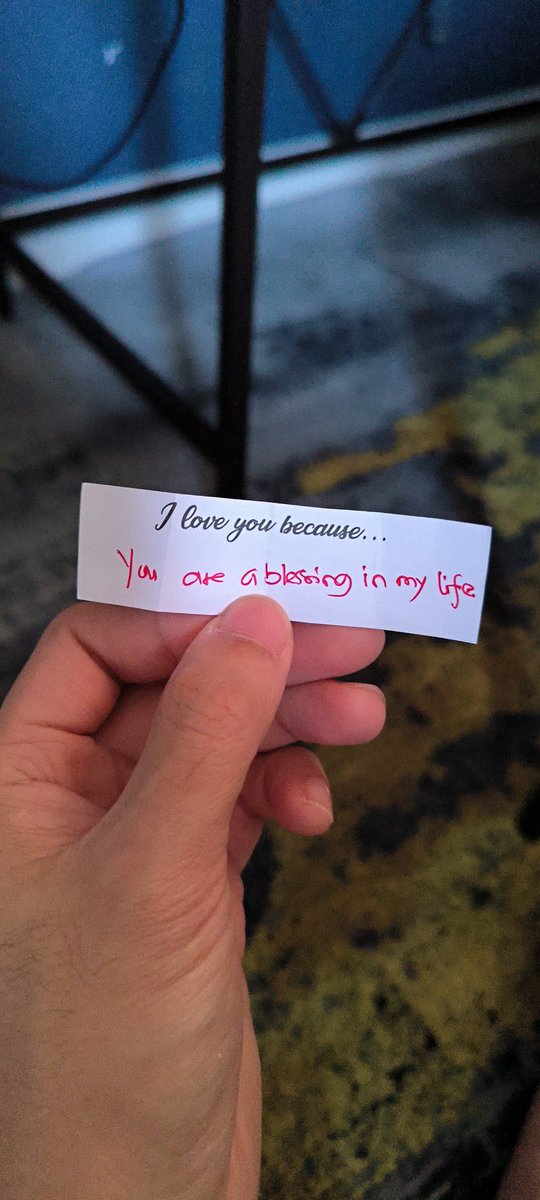 I love you because...
You are a blessing in my life